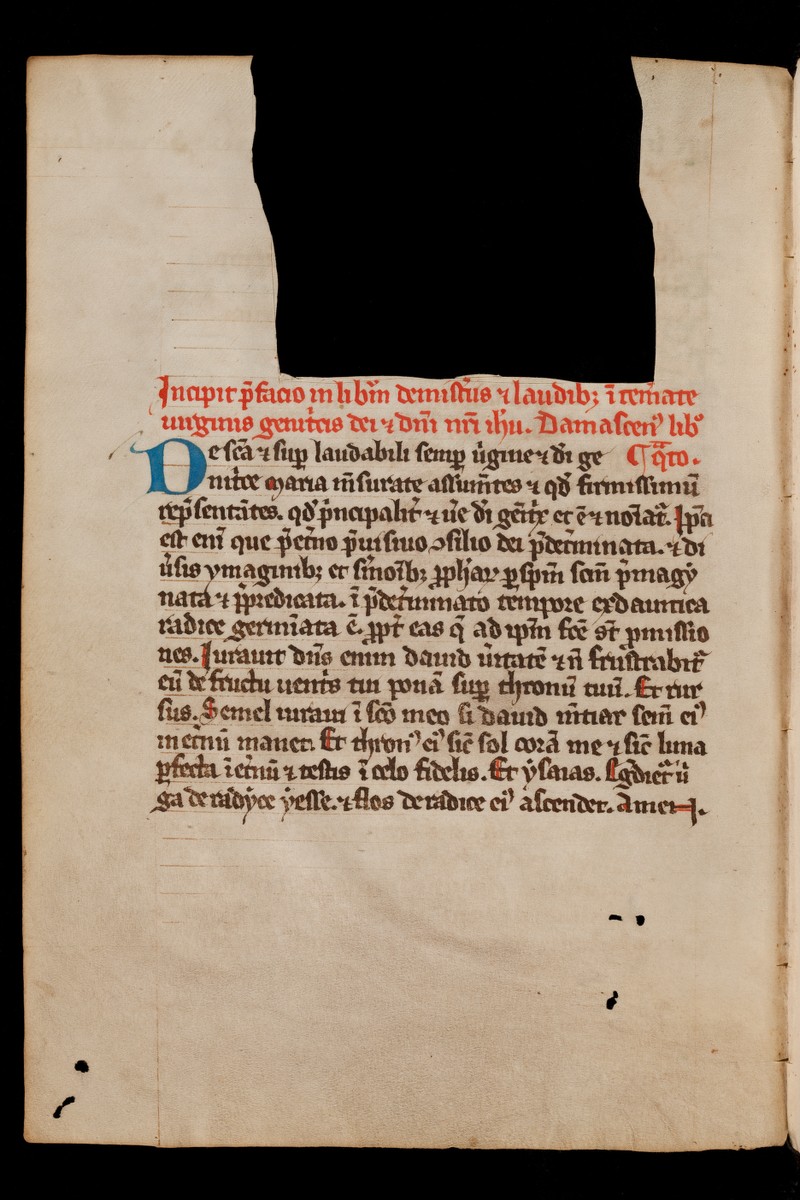 Incipit p̄facio in libr̄m demist̄iis ⁊ laudib; ī temate
uirginis genit͛cis dei ⁊ dn̄i nr̄i ihū. Damasceni᷒ lib᷒
De sc̄a ⁊ sup̄ laudabili semꝑ ūgine ⁊ d̄i ge q̄rto.
nit͛ce maria m̄surate assūm̄tes ⁊ qd̄ firmissimū
rep̄sentātes. qd̄ p̄ncipalit͛ ⁊ ūe d̄i gēit͛x et ē ⁊ noīat͛. Ip̄a
est enī que p̄et͛no p̄uisiuo ꝯsilio dei p̄det͛minata. ⁊ di
ūsis ymaginib; et s͛moīb; ꝓph̄aꝝ ꝑ sp̄m sc̄m p̄magy
nata ⁊ p̄predicata. ī p̄det͛minato tempore ex dauitica
radice germīata ē. ꝓpt͛ eas q̄ ad ip̄m fc̄e st̄ ꝓmissio
nes. Iurauit dn̄s enim dauid ūitatē ⁊ n̄ frustrabit͛
eū de fructu uent͛s tui ponā suꝑ thronū tuū. Et rur
sus. Semel iuraui ī sc̄o meo si dauid m̄tiar sem̄ ei᷒
in et͛nū manet. Et thron᷒ ei᷒ sic̄ sol corā me ⁊ sic̄ luna
ꝑfecta ī et͛nū ⁊ testis ī celo fidelis. Et ysaias. Eg͛diet͛ ū
ga de radyce yesse. ⁊ flos de radice ei᷒ ascendet. Amen.